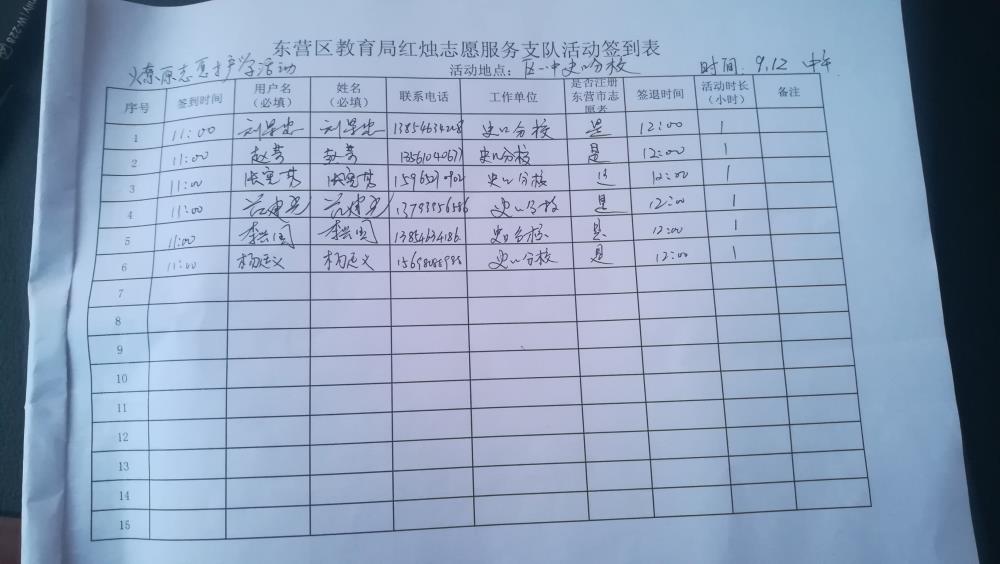 东营区教育局红烛志愿服务支队活动签到表
燎原志愿护学活动 活动地点：区一中史口分校 时间：9.12 中午
序号 签到时间 用户名（必填） 姓名（必填） 联系电话 工作单位 是否注册东营市志愿者 签退时间 活动时长（小时） 备注
1 11:00 史口分校 是 12:00 1
2 11:00 赵芳 赵芳 13561040677 史口分校 是 12:00 1
3 11:00 史口分校 是 12:00 1
4 11:00 史口分校 是 12:00 1
5 11:00 李 李 13854634186 史口分校 是 12:00 1
6 11:00 杨 义 杨 义 史口分校 是 12:00 1
7
8
9
10
11
12
13
14
15